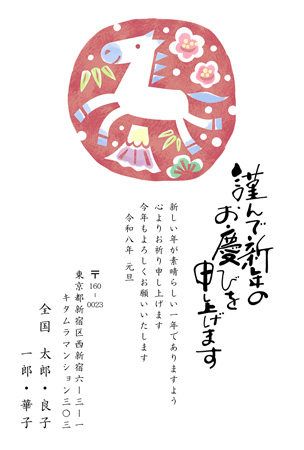 謹んで新年の
お慶びを
申し上げます
新しい年が素晴らしい一年でありますよう
心よりお祈り申し上げます
今年もよろしくお願いいたします
令和八年 元旦
〒160-0023
東京都新宿区西新宿六ー三ー一
キタムラマンション三〇三
全国 太郎・良子
一郎・華子